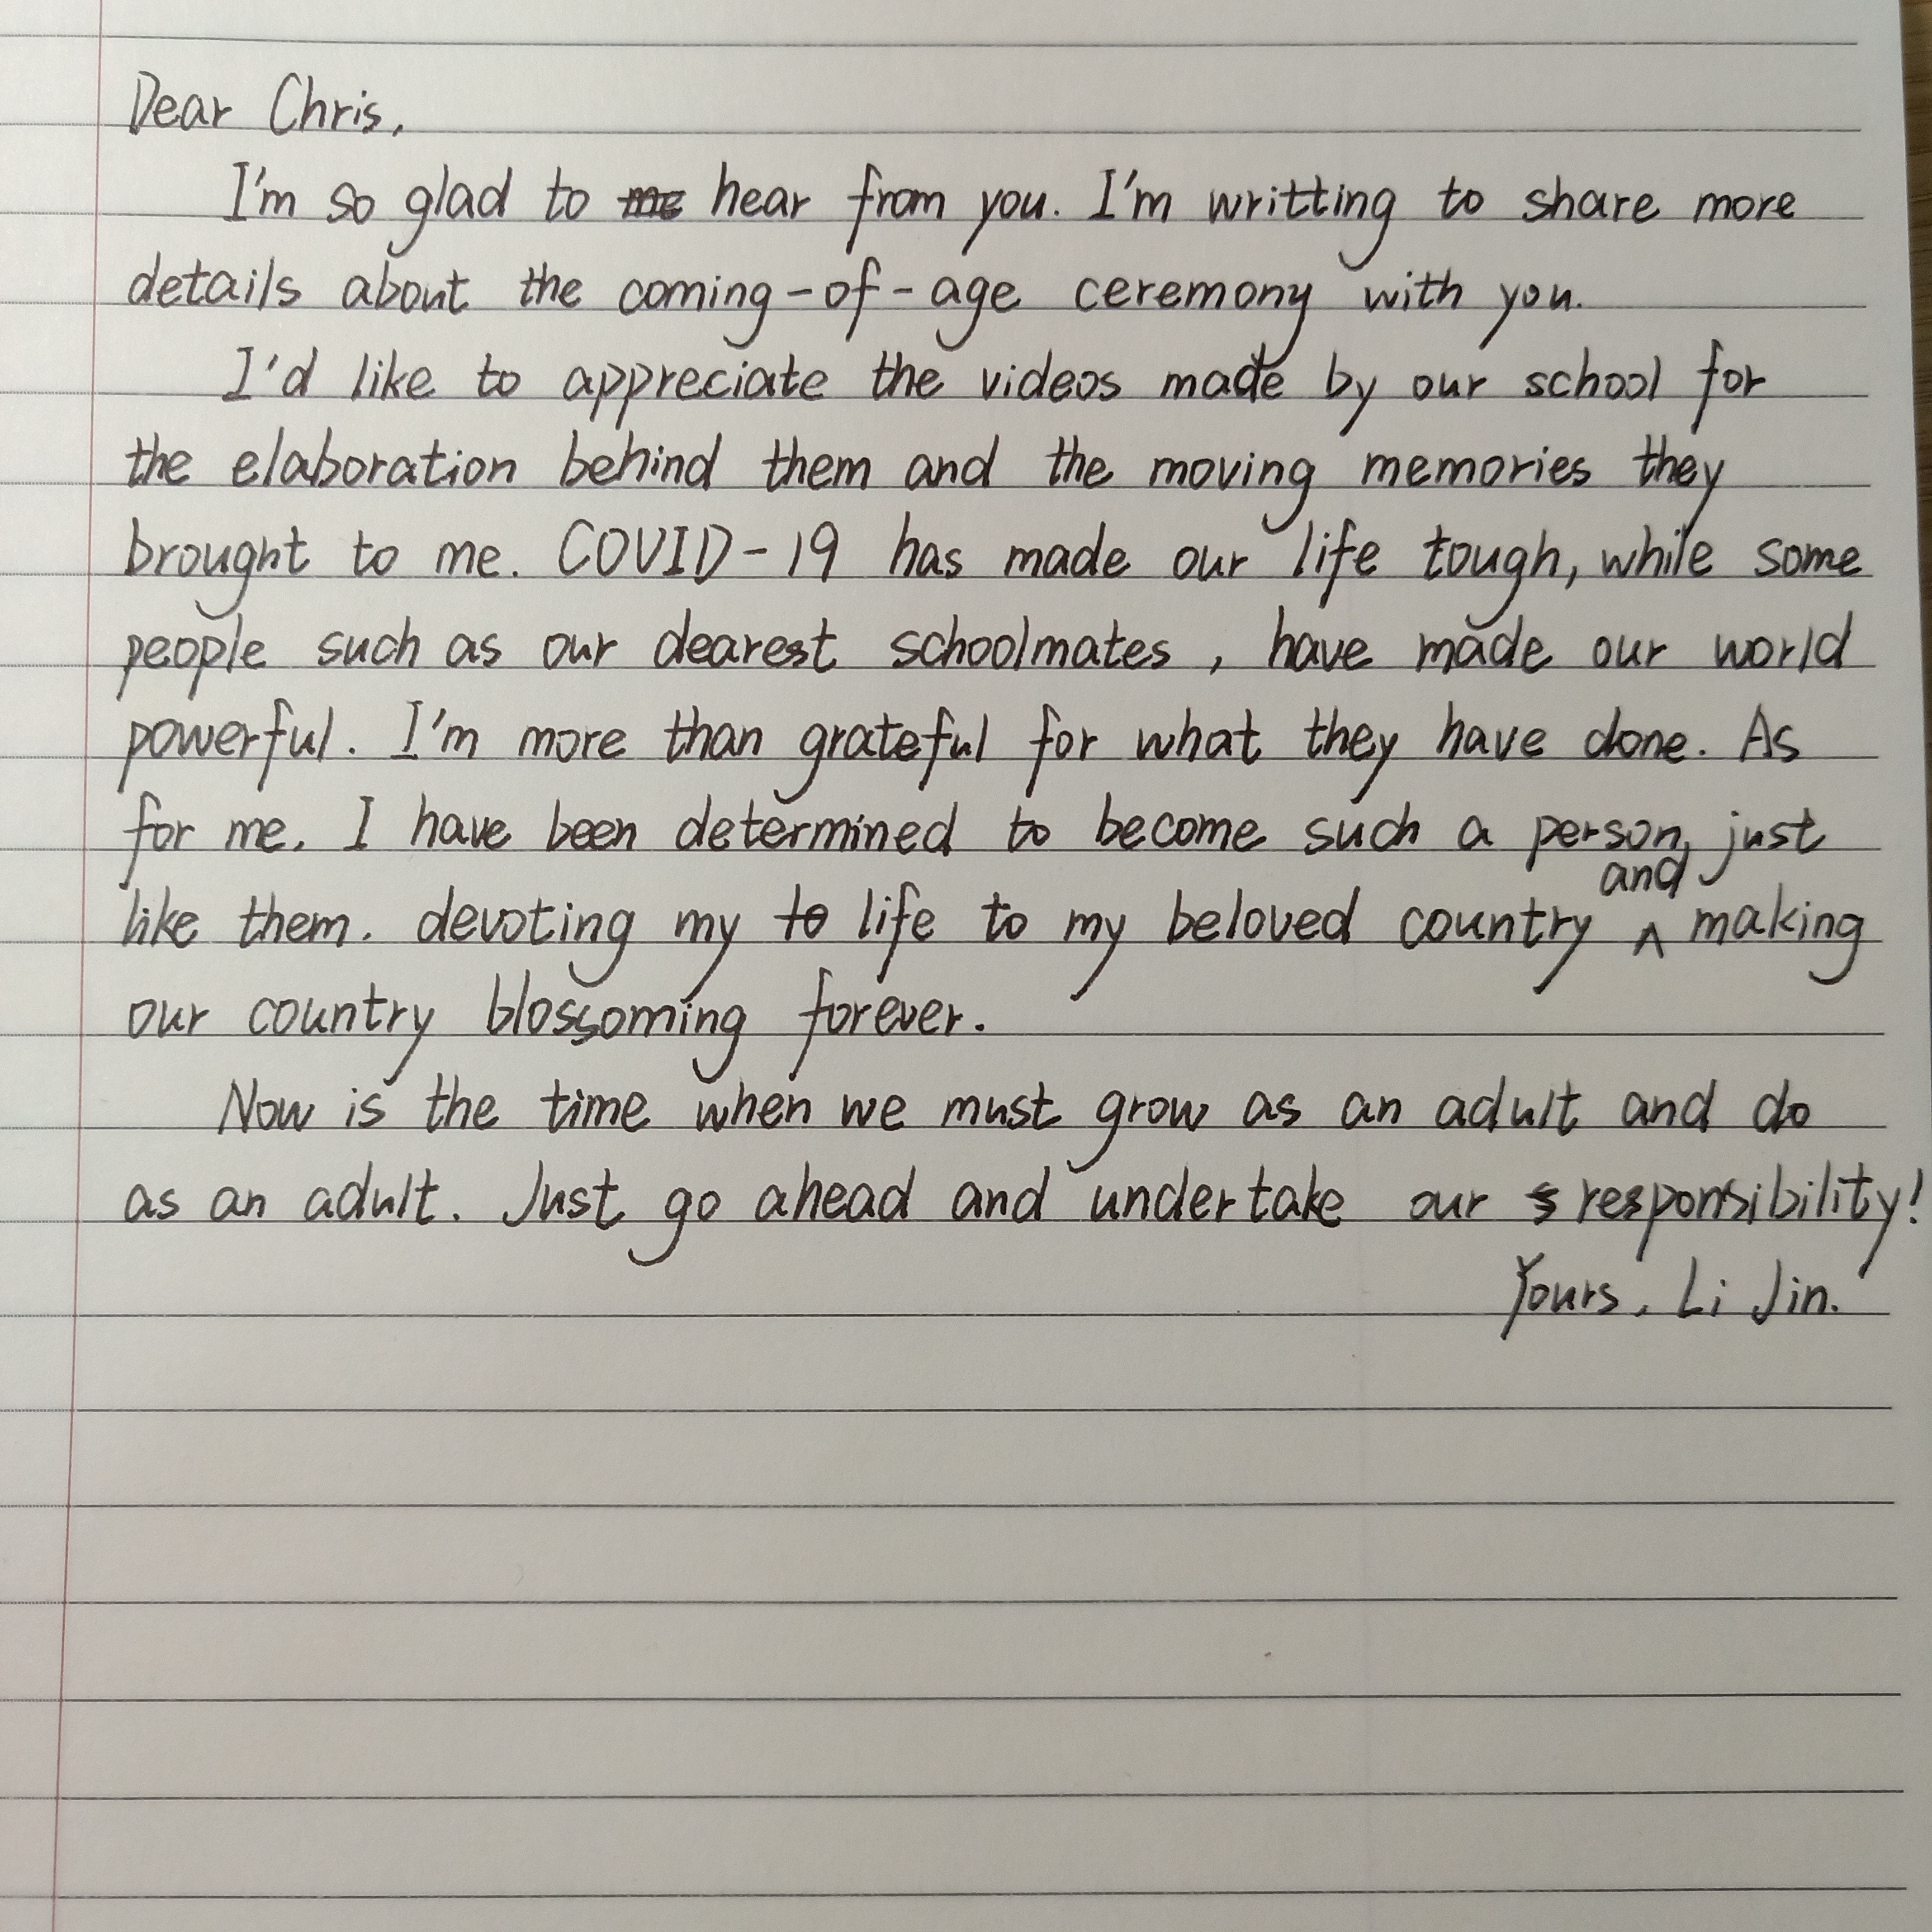 Dear Chris,
I'm so glad to hear from you. I'm writting to share more
details about the coming-of-age ceremony with you.
I'd like to appreciate the videos made by our school for
the elaboration behind them and the moving memories they
brought to me. COVID-19 has made our life tough, while some
people such as our dearest schoolmates, have made our world
powerful. I'm more than grateful for what they have done. As
for me, I have been determined to become such a person, just
like them. devoting my life to my beloved country and making
our country blossoming forever.
Now is the time when we must grow as an adult and do
as an adult. Just go ahead and undertake our responsibility!
Yours, Li Jin.